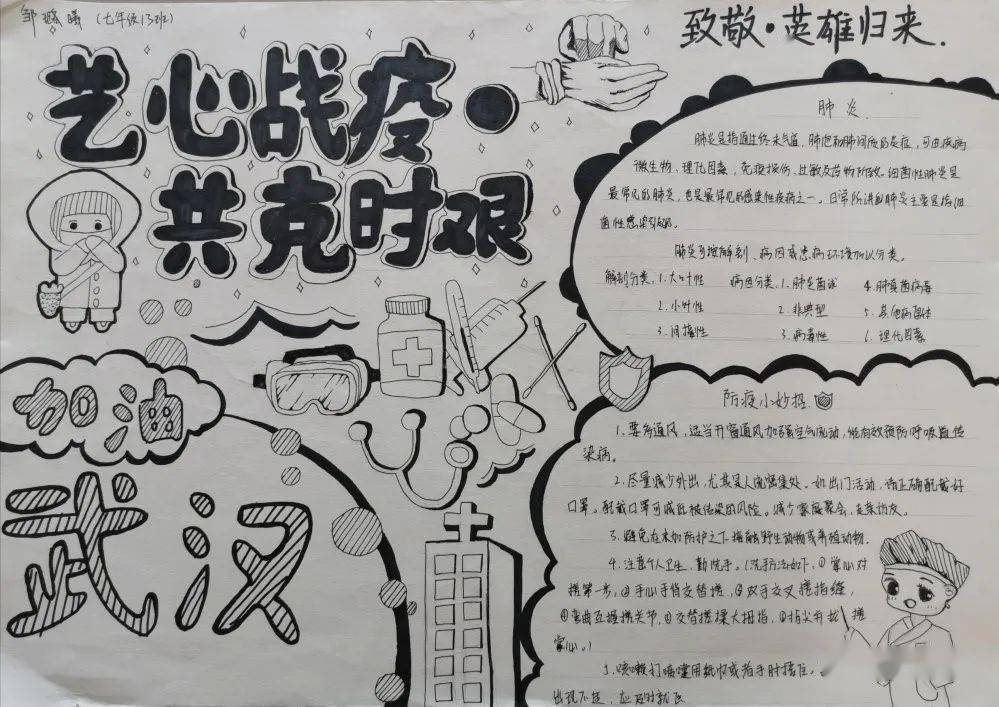 邹 曦（七年级13班）
艺心战疫·
共克时艰
致敬·英雄归来.
加油
武汉
肺炎
肺炎是指通过终末气道,肺泡和肺间质的炎症,可由疾病
微生物、理化因素,免疫损伤、过敏及药物所致.细菌性肺炎是
最常见的肺炎,也是最常见的感染性疾病之一。日常所讲的肺炎主要是指细
菌性感染引起的.
肺炎可按解剖、病因或患病环境加以分类。
解剖分类,1.大叶性 病因分类,1.肺炎菌 4.肺真菌病毒
2.小叶性 2.非典型 5.其他病菌体
3.间接性 3.病毒性 6.理化因素
防疫小妙招.
1.要多通风,适当开窗通风加强空气流动,能有效预防呼吸道传
染病。
2.尽量减少外出,尤其是人流密集处。如出门活动,请正确配戴好
口罩。配戴口罩可减低被传染的风险。减少家庭聚会,走亲访友。
3.避免在未加防护之下接触野生动物或养殖动物.
4.注意个人卫生、勤洗手。(洗手防法如下,①掌心对
搓第一步,②手心手背交替搓,③双手交叉搓指缝,
④弯曲互握搓关节,⑤交替搓揉大拇指,⑥指尖并拢 搓
掌心。)
5.咳嗽打喷嚏用纸巾或者手肘捂住。
出现不适,应及时就医